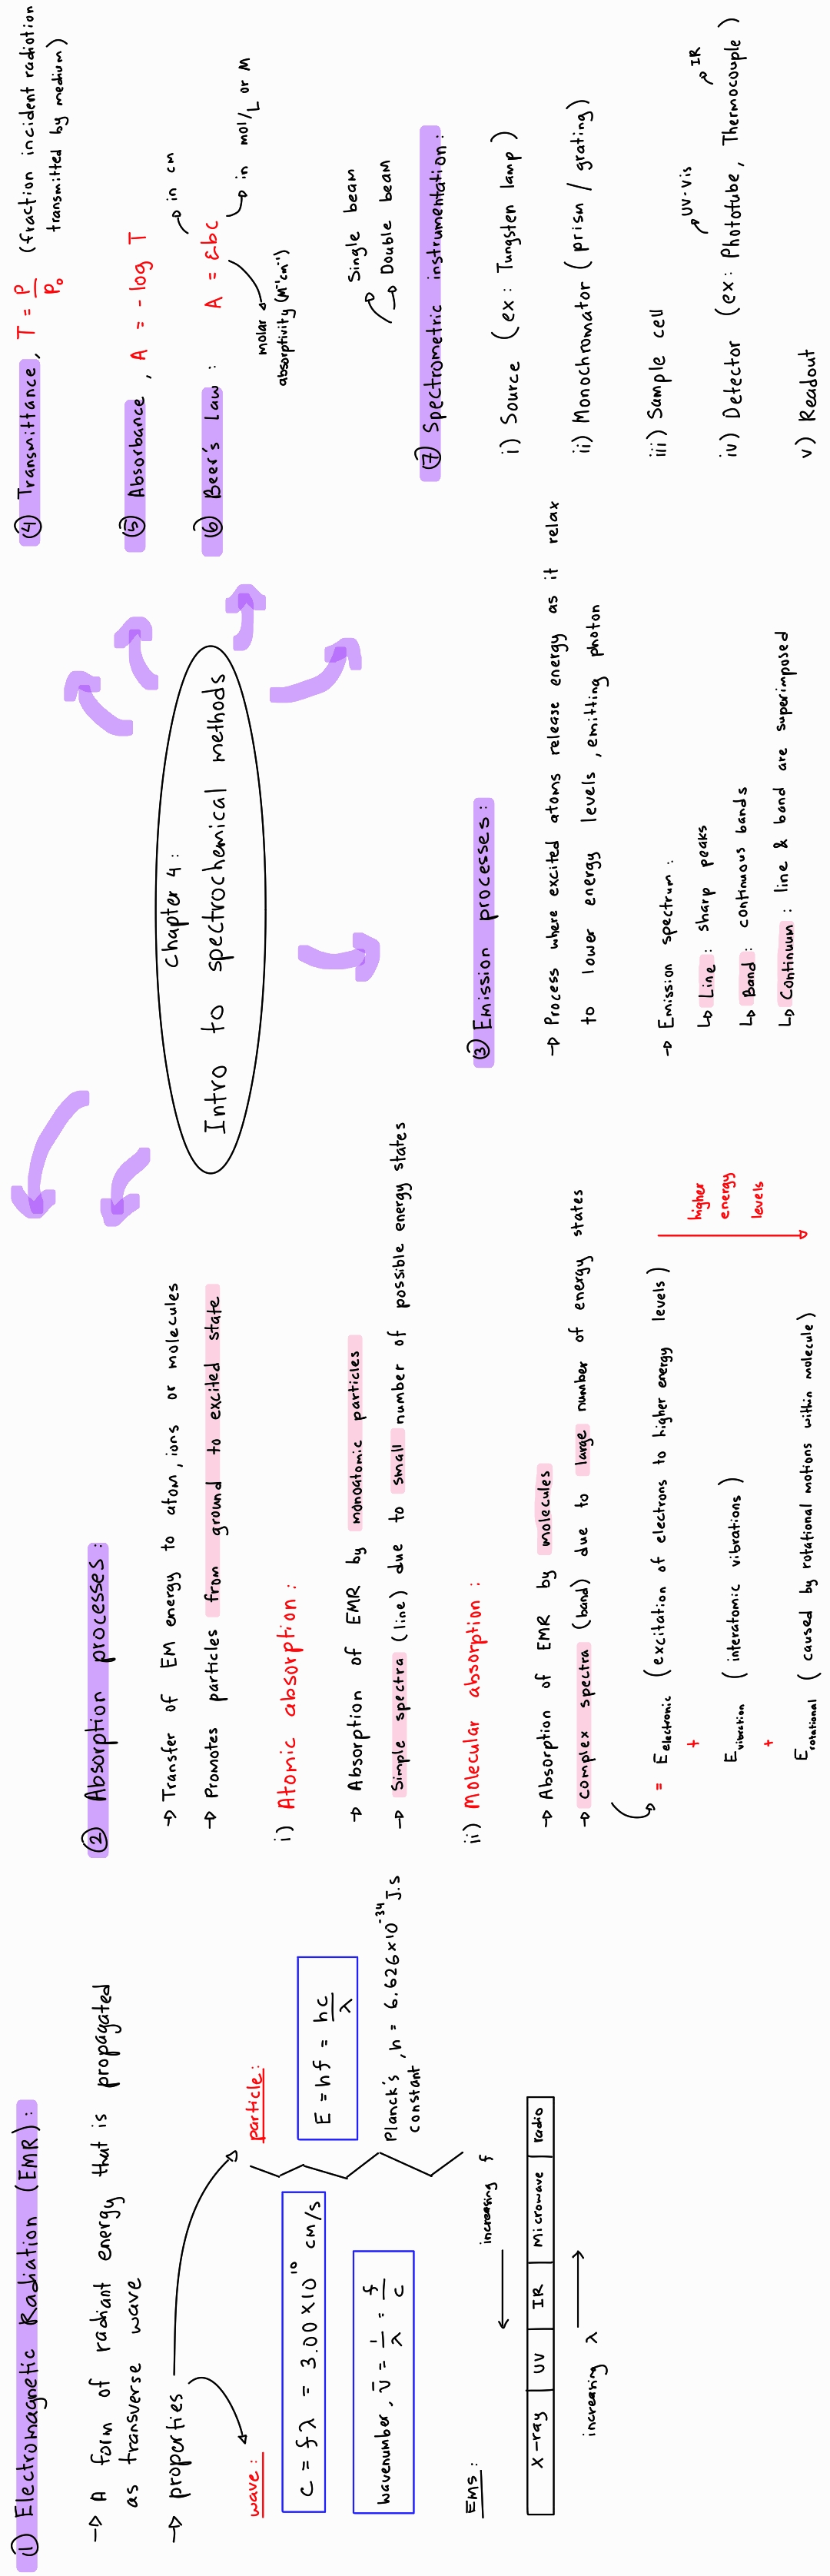 ① Electromagnetic Radiation (EMR) :
→ A form of radiant energy that is propagated
as transverse wave
→ properties
wave :
c = fλ = 3.00 × 10¹⁰ cm/s
wavenumber, ῡ = 1/λ = f/c
particle :
E = hf = hc/λ
Planck's constant, h = 6.626×10⁻³⁴ J.s
EMS :
increasing f
X-ray | UV | IR | Microwave | radio
increasing λ
② Absorption processes :
→ Transfer of EM energy to atom, ions or molecules
→ Promotes particles from ground to excited state
i) Atomic absorption :
→ Absorption of EMR by monoatomic particles
→ Simple spectra (line) due to small number of possible energy states
ii) Molecular absorption :
→ Absorption of EMR by molecules
→ complex spectra (band) due to large number of energy states
= E electronic (excitation of electrons to higher energy levels)
+
E vibration (interatomic vibrations)
+
E rotational (caused by rotational motions within molecule)
higher
energy
levels
Chapter 4 :
Intro to spectrochemical methods
③ Emission processes :
→ Process where excited atoms release energy as it relax
to lower energy levels, emitting photon
→ Emission spectrum :
↳ Line : sharp peaks
↳ Band : continuous bands
↳ Continuum : line & band are superimposed
④ Transmittance, T = P/P₀ (fraction incident radiotion
transmitted by medium)
⑤ Absorbance, A = -log T
⑥ Beer's law : A = εbc
in cm
in mol/L or M
molar
absorptivity (M⁻¹cm⁻¹)
Single beam
Double beam
⑦ Spectrometric instrumentation :
i) Source (ex : Tungsten lamp)
ii) Monochromator (prism / grating)
iii) Sample cell
UV-Vis
IR
iv) Detector (ex : Phototube, Thermocouple)
v) Readout